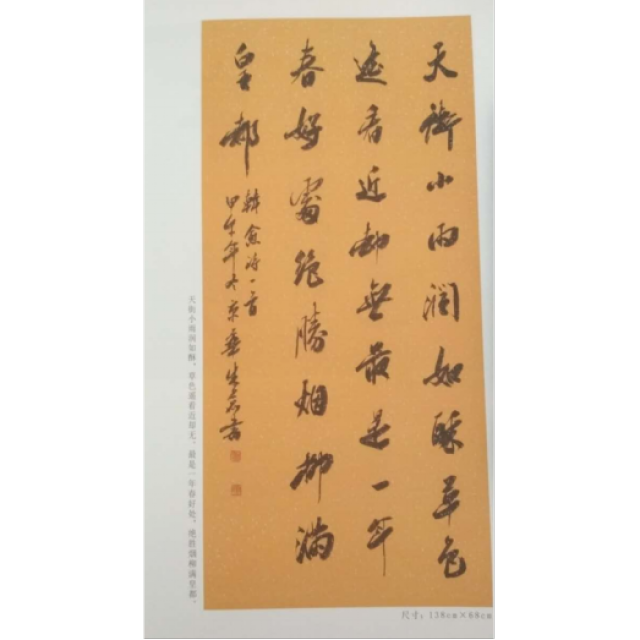 天街小雨潤如酥草色
遥看近却無最是一年
春好處絶勝烟柳滿
皇都
韓愈詩一首
甲午年于京華生志書
天街小雨润如酥，草色遥看近却无。最是一年春好处，绝胜烟柳满皇都。
尺寸：138cm×68cm